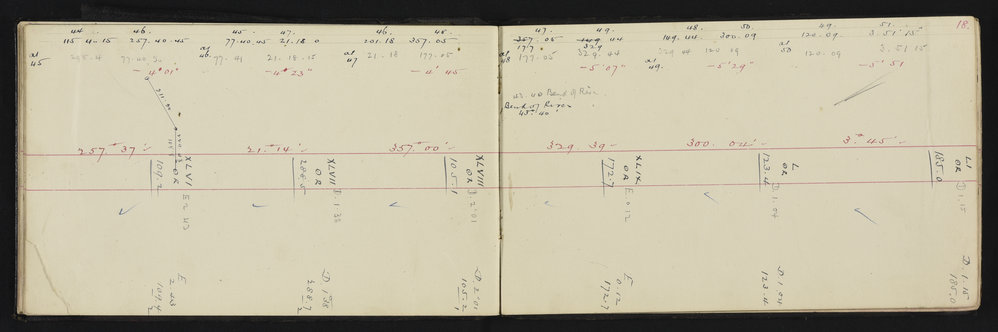 44. 46. 45. 47. 46. 48.
115.4.15 257.40.45 77.40.45 21.18.0 201.18 357.05
at
45
77.40.30
at
46. 77.41 21.18.15
at
47 21.18 177.05
- 4'01" - 4'23" - 4'45
257°37'
21°14'
357°00'
XLVI
OR
109.2
E 2.43
XLVII
OR
288.5
D.1.38
XLVIII
OR
105.1
D.2.01
E
2.43
109.4
2
D 1.38
288.7
2
D 2.01
105.2
47. 49. 48. 50. 49. 51. 18.
357.05 149.44 149.44 300.09 120.09 3.51'15"
177 329
at
48 177.05 329.44
at
49. 329.44 120.09
at
50 120.09 3.51.15
- 5'07" - 5'29" - 5'51
45.40 Bend of River
Bend of River
45.40
329.39
300.04
3°45
XLIX
OR
172.7
E 0.12
L
OR
123.4
D 1.04
LI
OR
185.0
D 1.15
E
0.12
172.7
D 1.04
123.4
D 1.15
185.0